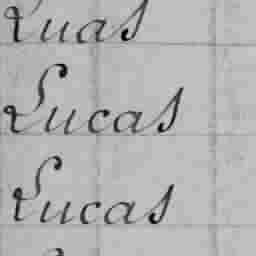 Luas
Lucas
Lucas